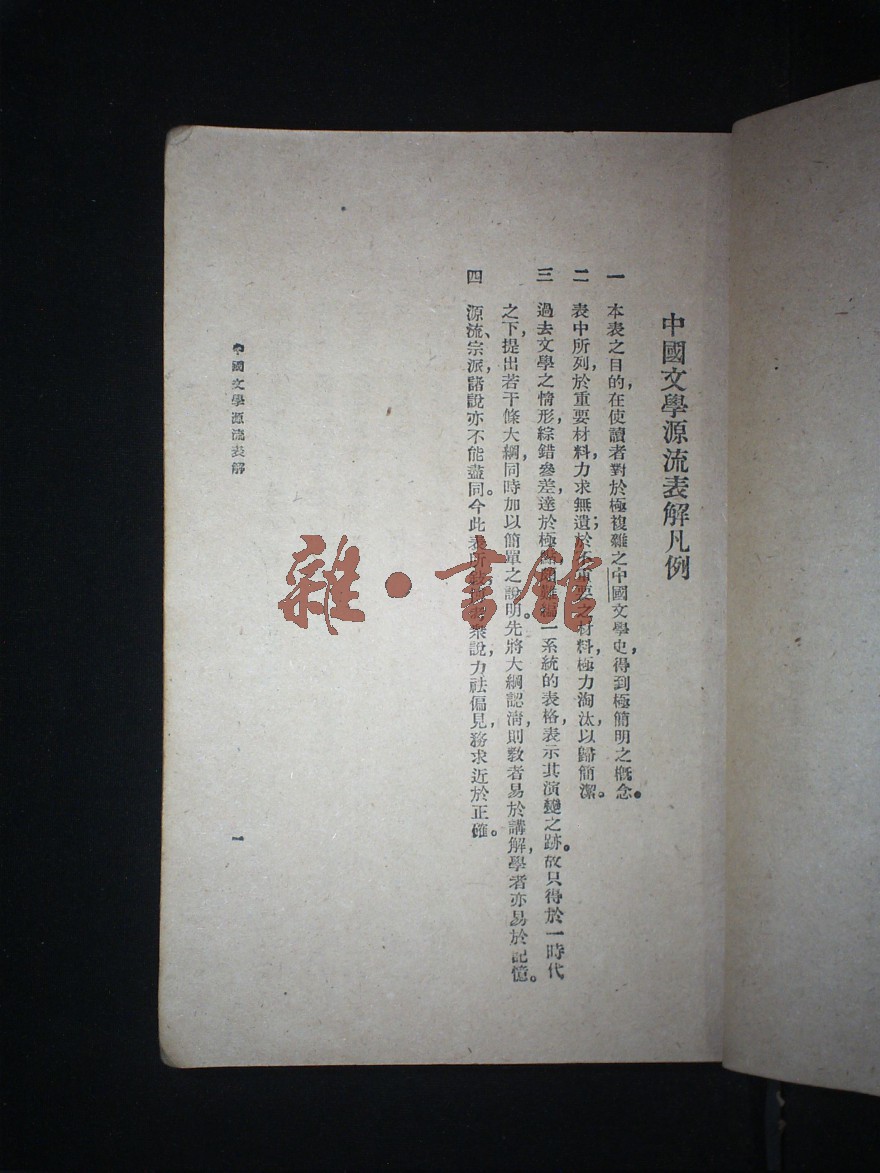 中國文學源流表解凡例
一 本表之目的，在使讀者對於極複雜之中國文學史，得到極簡明之概念。
二 表中所列，於重要材料，力求無遺；於不重要之材料，極力淘汰，以歸簡潔。
三 過去文學之情形，綜錯參差，達於極點，一系統的表格，表示其演變之跡。故只得於一時代
之下，提出若干條大綱，同時加以簡單之說明。先將大綱認清，則敎者易於講解，學者亦易於記憶。
四 源流、宗派，諸說亦不能盡同。今此表所衆說，力祛偏見，務求近於正確。
中國文學源流表解
一
雜·書館